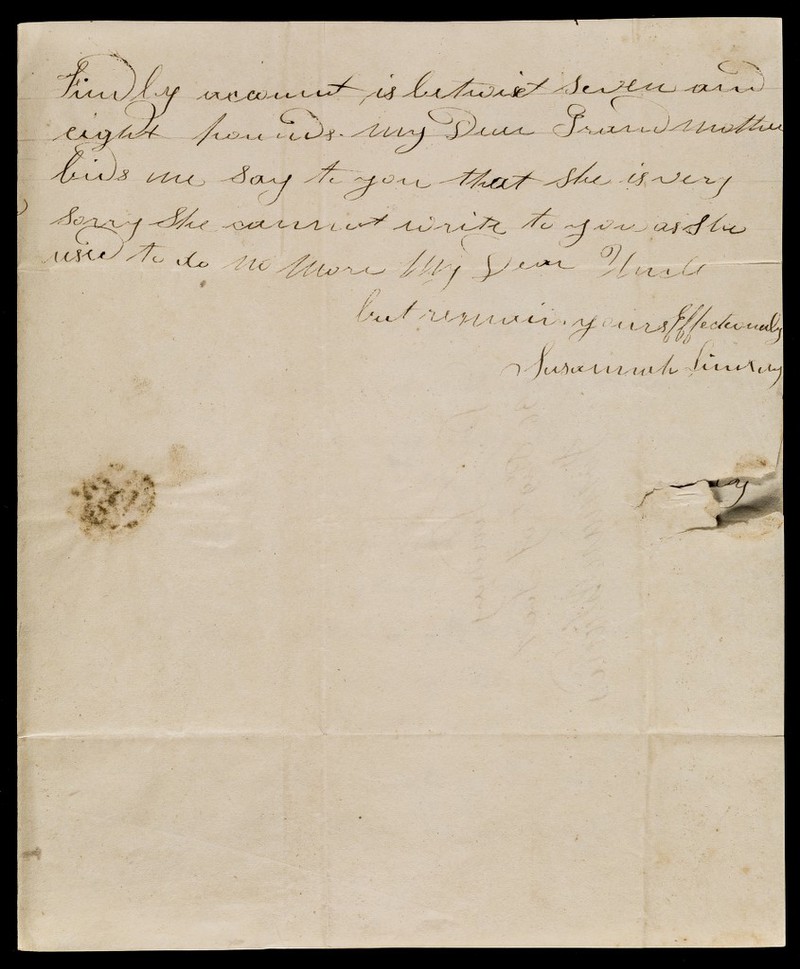 Findly account is betwixt seven and
eight pounds. My Dear Grand Mother
bids me say to you that she is very
sorry She cannot write to you as She
used to do no more My Dear Uncle
but remain yours Effectionaly
Susannah